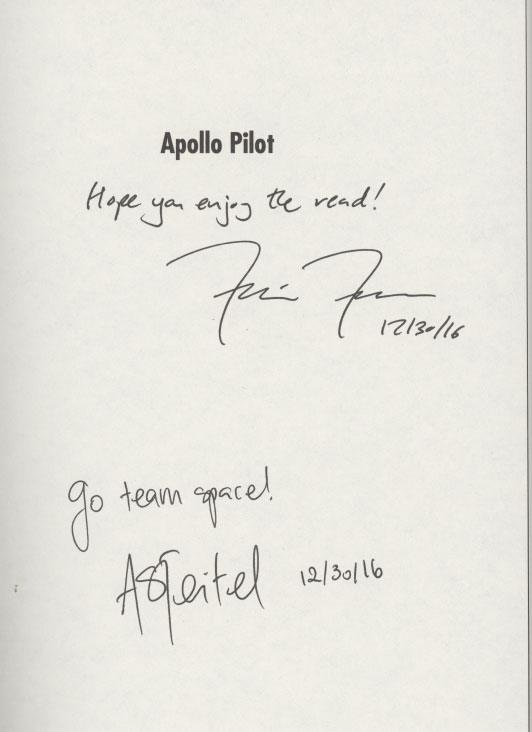 Apollo Pilot
Hope you enjoy the read!
12/30/16
go team space!
ASTeitel 12/30/16